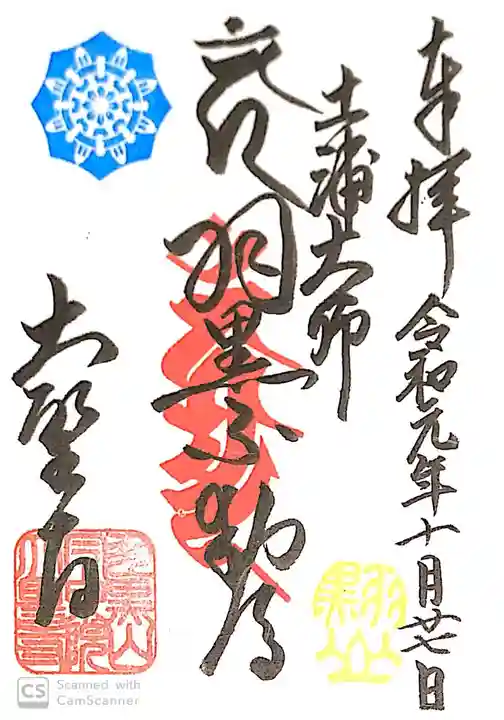 奉拝
令和元年十月廿七日
土浦大師
羽黒不動尊
大聖寺
羽黒山
CS Scanned with
CamScanner